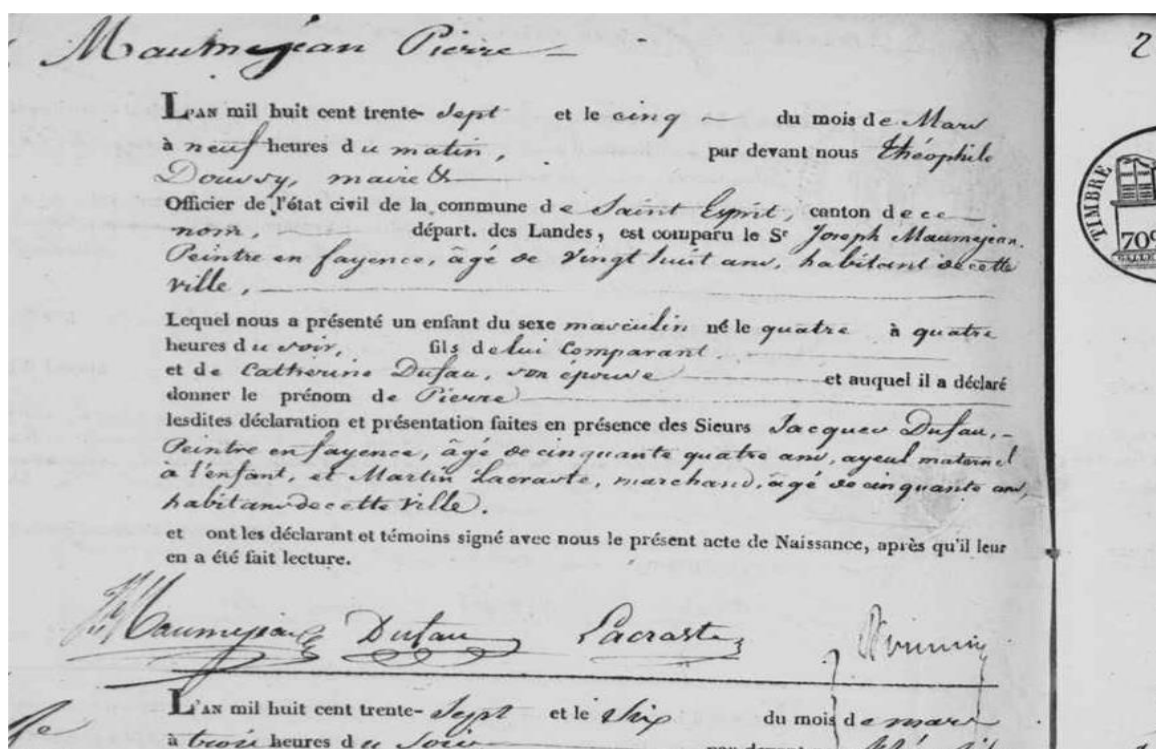 Maumejean Pierre
L'AN mil huit cent trente-sept et le cinq du mois de Mars
à neuf heures du matin, par devant nous théophile
Doussy, maire &
Officier de l'état civil de la commune de Saint Esprit, canton de ce
nom, départ. des Landes, est comparu le Sr Joseph Maumejean.
Peintre en fayence, âgé de vingt huit ans, habitant de cette
ville,
Lequel nous a présenté un enfant du sexe masculin né le quatre à quatre
heures du soir, fils de lui Comparant
et de Catherine Dufau, son epouse et auquel il a déclaré
donner le prénom de Pierre
lesdites déclaration et présentation faites en présence des Sieurs Jacques Dufau,
Peintre en fayence, âgé de cinquante quatre ans, ayeul maternel
à l'enfant, et Martin Lacraste, marchand, âgé de cinquante ans,
habitans de cette ville.
et ont les déclarant et témoins signé avec nous le présent acte de Naissance, après qu'il leur
en a été fait lecture.
Maumejean Dufau Lacraste
L'AN mil huit cent trente-sept et le six du mois de mars
à trois heures du soir par devant
2
TIMBRE
70c